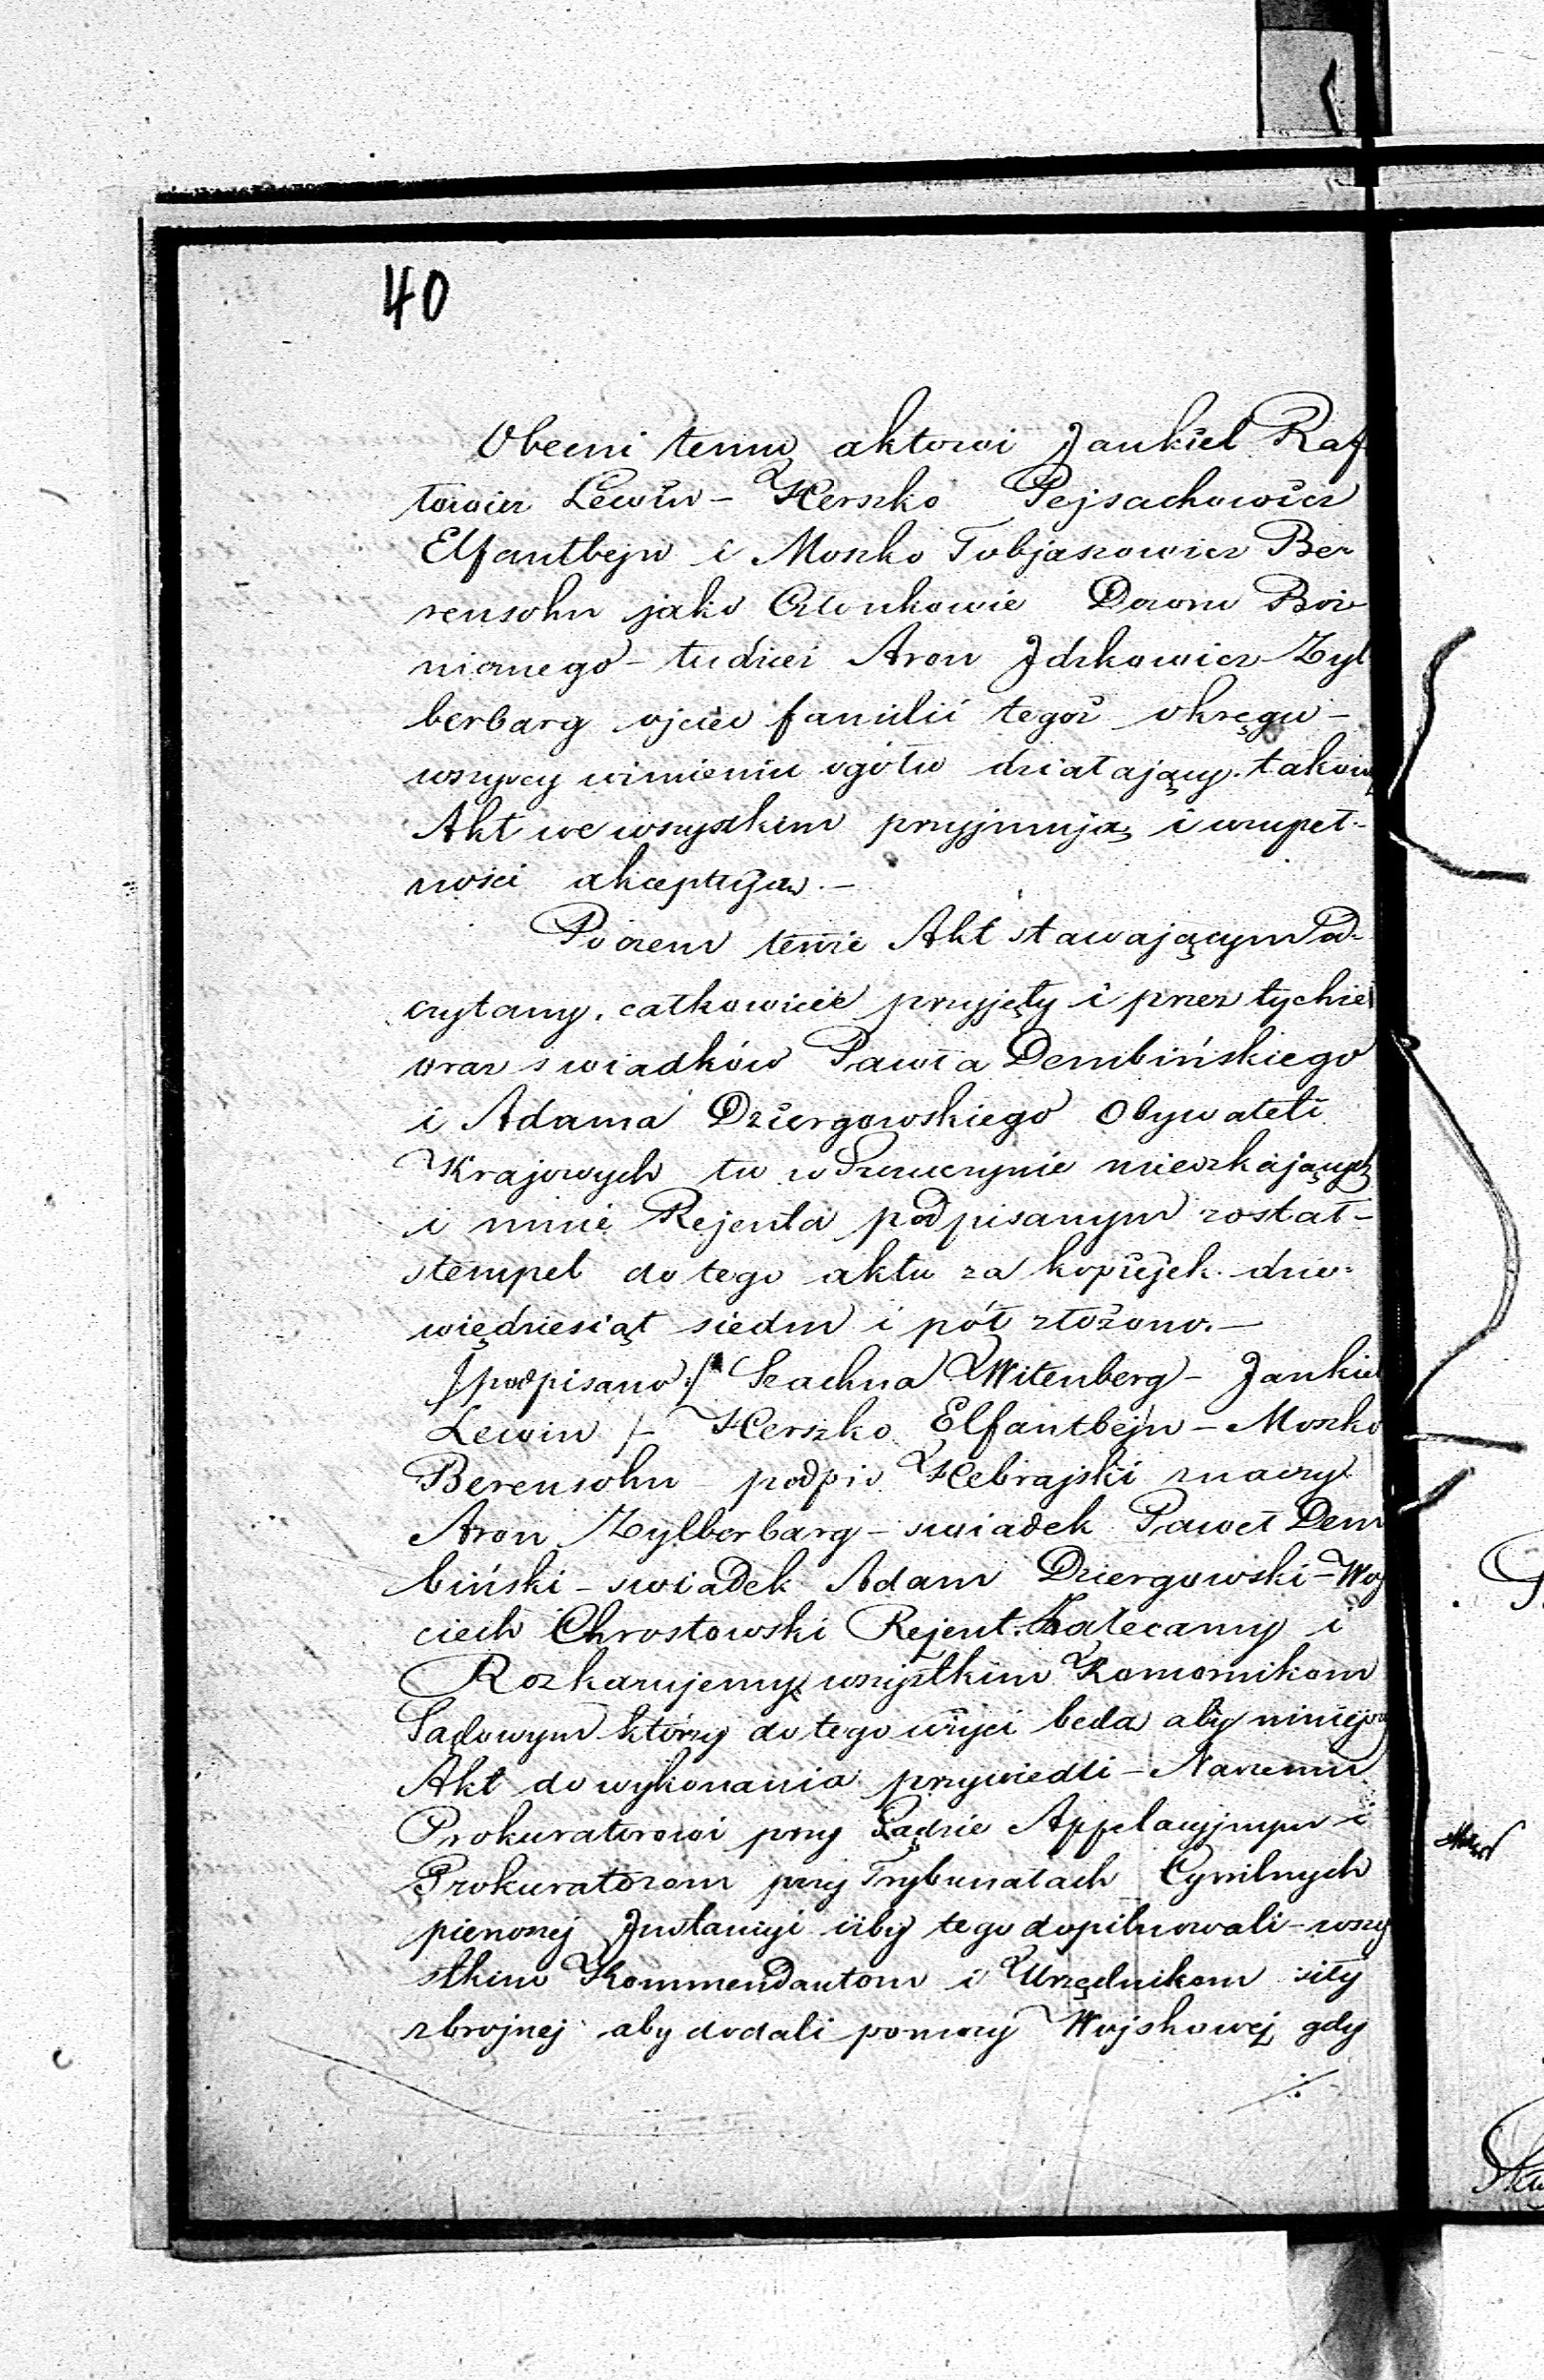 40
Obecni temu aktowi Jankiel Raf
towicz Lewin – Herszko Pejsachowicz
Elfantbejn i Moszko Tobjaszowicz Ber
rensohn jako Członkowie Dozoru Boż
nicznego – tudzież Aron Idzkowicz Zyl
berbarg ojciec familii tegoż okręgu –
wszyscy wimieniu ogółu działający takowy
Akt we wszystkim przyjmują i wzupeł-
ności akceptują. –
Poczem tenże Akt stawającym od-
czytany, całkowicie przyjęty i przez tychże
oraz swiadków Pawła Dembińskiego
i Adama Dziergowskiego Obywateli
Krajowych tu w Szczuczynie mieszkających
i mnie Rejenta podpisanym został –
stempel do tego aktu za kopiejek dzie-
więdziesiąt siedm i pół złożono. –
/podpisano:/ Szachna Witenberg – Jankiel
Lewin /– Herszko Elfantbejn – Moszko
Berensohn – podpis Hebrajski znaczy
Aron Zylberbarg – swiadek Paweł Dem
biński – swiadek Adam Dziergowski – Woj
ciech Chrostowski Rejent. Zalecamy i
Rozkazujemy wszystkim Komornikom
Sądowym którzy do tego użyci beda aby niniejszy
Akt do wykonania przywiedli – Naszemu
Prokuratorowi przy Sądzie Appelacyjnym i
Prokuratorom przy Trybunałach Cywilnych
pierwszej Instancyi iżby tego dopilnowali – wszy
stkim Kommendantom i Urzędnikom siły
zbrojnej aby dodali pomocy Wojskowej gdy